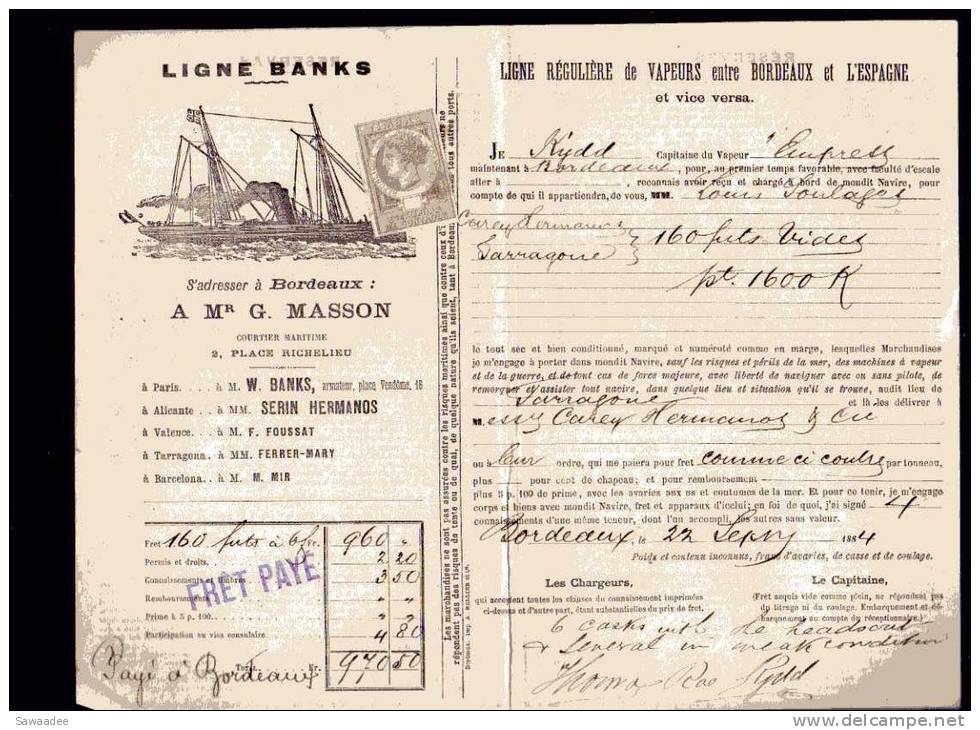 LIGNE BANKS
S'adresser à Bordeaux :
A MR G. MASSON
COURTIER MARITIME
2, PLACE RICHELIEU
à Paris. . . . à M. W. BANKS, armateur, place Vendôme, 16
à Alicante . à MM. SERIN HERMANOS
à Valence. . . à M. F. FOUSSAT
à Tarragona. à MM. FERRER-MARY
à Barcelona. . à M. M. MIR
Fret 160 futs à 6 fr. 960 "
Permis et droits. 2 20
Connaissements et timbres. 3 50
Remboursements " "
Prime à 5 p. 100. " "
Participation au visa consulaire 4 80
Total. Fr. 970 50
FRÊT PAYÉ
Payé à Bordeaux
Les marchandises ne sont pas assurées contre les risques maritimes ainsi que contre ceux d'
répondent pas des risques de tente ou de quai, de quelque nature qu'ils soient, tant à Bordeaux
tous autres ports.
LIGNE RÉGULIÈRE de VAPEURS entre BORDEAUX et L'ESPAGNE
et vice versa.
JE Kydd Capitaine du Vapeur "Empress
maintenant à Bordeaux, pour, au premier temps favorable, avec faculté d'escale
aller à , reconnais avoir reçu et chargé à bord de mondit Navire, pour
compte de qui il appartiendra, de vous, MM. Louis Soulages
Carey Hermanos 160 futs Vides
Tarragone
pt. 1600 K
le tout sec et bien conditionné, marqué et numéroté comme en marge, lesquelles Marchandises
je m'engage à porter dans mondit Navire, sauf les risques et périls de la mer, des machines à vapeur
et de la guerre, et de tout cas de force majeure, avec liberté de naviguer avec ou sans pilote, de
remorquer et d'assister tout navire, dans quelque lieu et situation qu'il se trouve, audit lieu de
Tarragone et là les délivrer à
M. essrs Carey Hermanos & Cie
ou à Leur ordre, qui me paiera pour fret comme ci contre par tonneau,
plus pour cent de chapeau; et pour remboursement
plus 5 p. 100 de prime, avec les avaries aux us et contumes de la mer. Et pour ce tenir, je m'engage
corps et biens avec mondit Navire, fret et apparaux d'icelui; en foi de quoi, j'ai signé 4
connaissements d'une même teneur, dont l'un accompli, les autres sans valeur.
Bordeaux, le 22 Sepbre 1884
Poids et contenu inconnus, franc d'avaries, de casse et de coulage.
Les Chargeurs,
qui acceptent toutes les clauses du connaissement imprimées
ci-dessus et d'autre part, étant substantielles du prix de fret.
Le Capitaine,
Fret acquis vide comme plein, ne répondant pas
du titrage ni du coulage. Embarquement et dé-
barquement au compte du réceptionnaire.
6 casks with the heads out
& several in weak condition
Thomas Rae Kydd
Sawaadee
www.delcampe.net